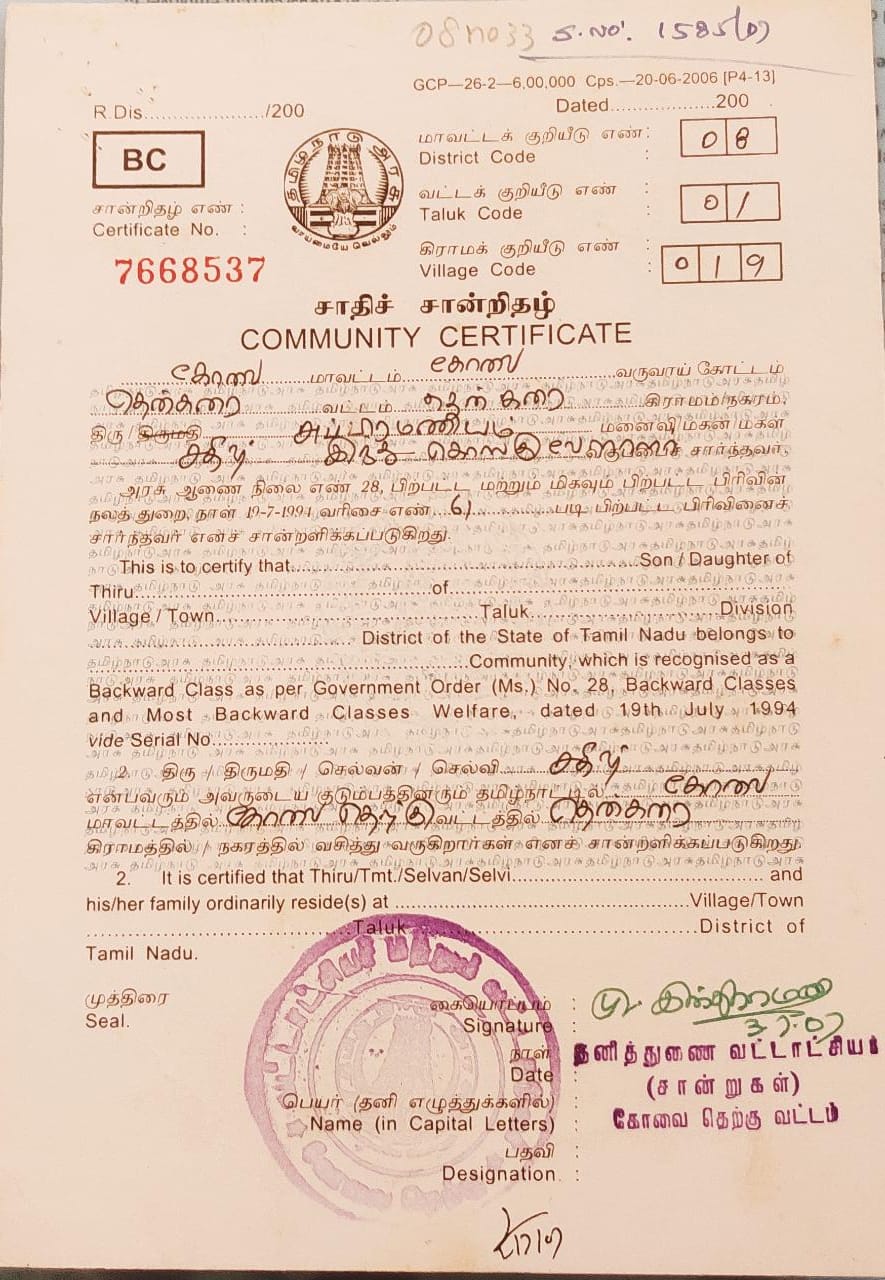 08no33 S.No. 1585/07
GCP—26-2—6,00,000 Cps.—20-06-2006 [P4-13]
R.Dis...................../200 Dated..................200
BC
தமிழ்நாடு அரசு
வாய்மையே வெல்லும்
மாவட்டக் குறியீடு எண் : 0 8
District Code :
வட்டக் குறியீடு எண் : 0 1
Taluk Code :
கிராமக் குறியீடு எண் : 0 1 9
Village Code :
சான்றிதழ் எண் :
Certificate No. :
7668537
சாதிச் சான்றிதழ்
COMMUNITY CERTIFICATE
கோவை மாவட்டம் கோவை வருவாய் கோட்டம்
தென்கரை வட்டம் தென்கரை கிராமம்/நகரம்,
திரு/திருமதி சுப்பிரமணியம் மனைவி/மகன்/மகள்
சதீஷ் இந்து கொங்கு வேளாளர் சார்ந்தவர்,
அரசு ஆணை நிலை எண் 28, பிற்பட்ட மற்றும் மிகவும் பிற்பட்ட பிரிவின்
நலத் துறை, நாள் 19-7-1994 வரிசை எண் 61 படி பிற்பட்ட பிரிவினைச்
சார்ந்தவர் எனச் சான்றளிக்கப்படுகிறது.
This is to certify that..................Son / Daughter of
Thiru..................of..................
Village / Town..................Taluk..................Division
.................. District of the State of Tamil Nadu belongs to
..................Community, which is recognised as a
Backward Class as per Government Order (Ms.) No. 28, Backward Classes
and Most Backward Classes Welfare, dated 19th July 1994
vide Serial No..................
2. திரு / திருமதி / செல்வன் / செல்வி சதீஷ்
என்பவரும் அவருடைய குடும்பத்தினரும் தமிழ்நாட்டில் கோவை
மாவட்டத்தில் கோவை தெற்கு வட்டத்தில் தென்கரை
கிராமத்தில் / நகரத்தில் வசித்து வருகிறார்கள் எனச் சான்றளிக்கப்படுகிறது.
2. It is certified that Thiru/Tmt./Selvan/Selvi.................. and
his/her family ordinarily reside(s) at ..................Village/Town
..................Taluk..................District of
Tamil Nadu.
முத்திரை
Seal.
கையொப்பம் :
Signature :
3.7.07
நாள் :
Date :
தனித்துணை வட்டாட்சியர்
(சான்றுகள்)
கோவை தெற்கு வட்டம்
பெயர் (தனி எழுத்துக்களில்) :
Name (in Capital Letters) :
பதவி :
Designation :